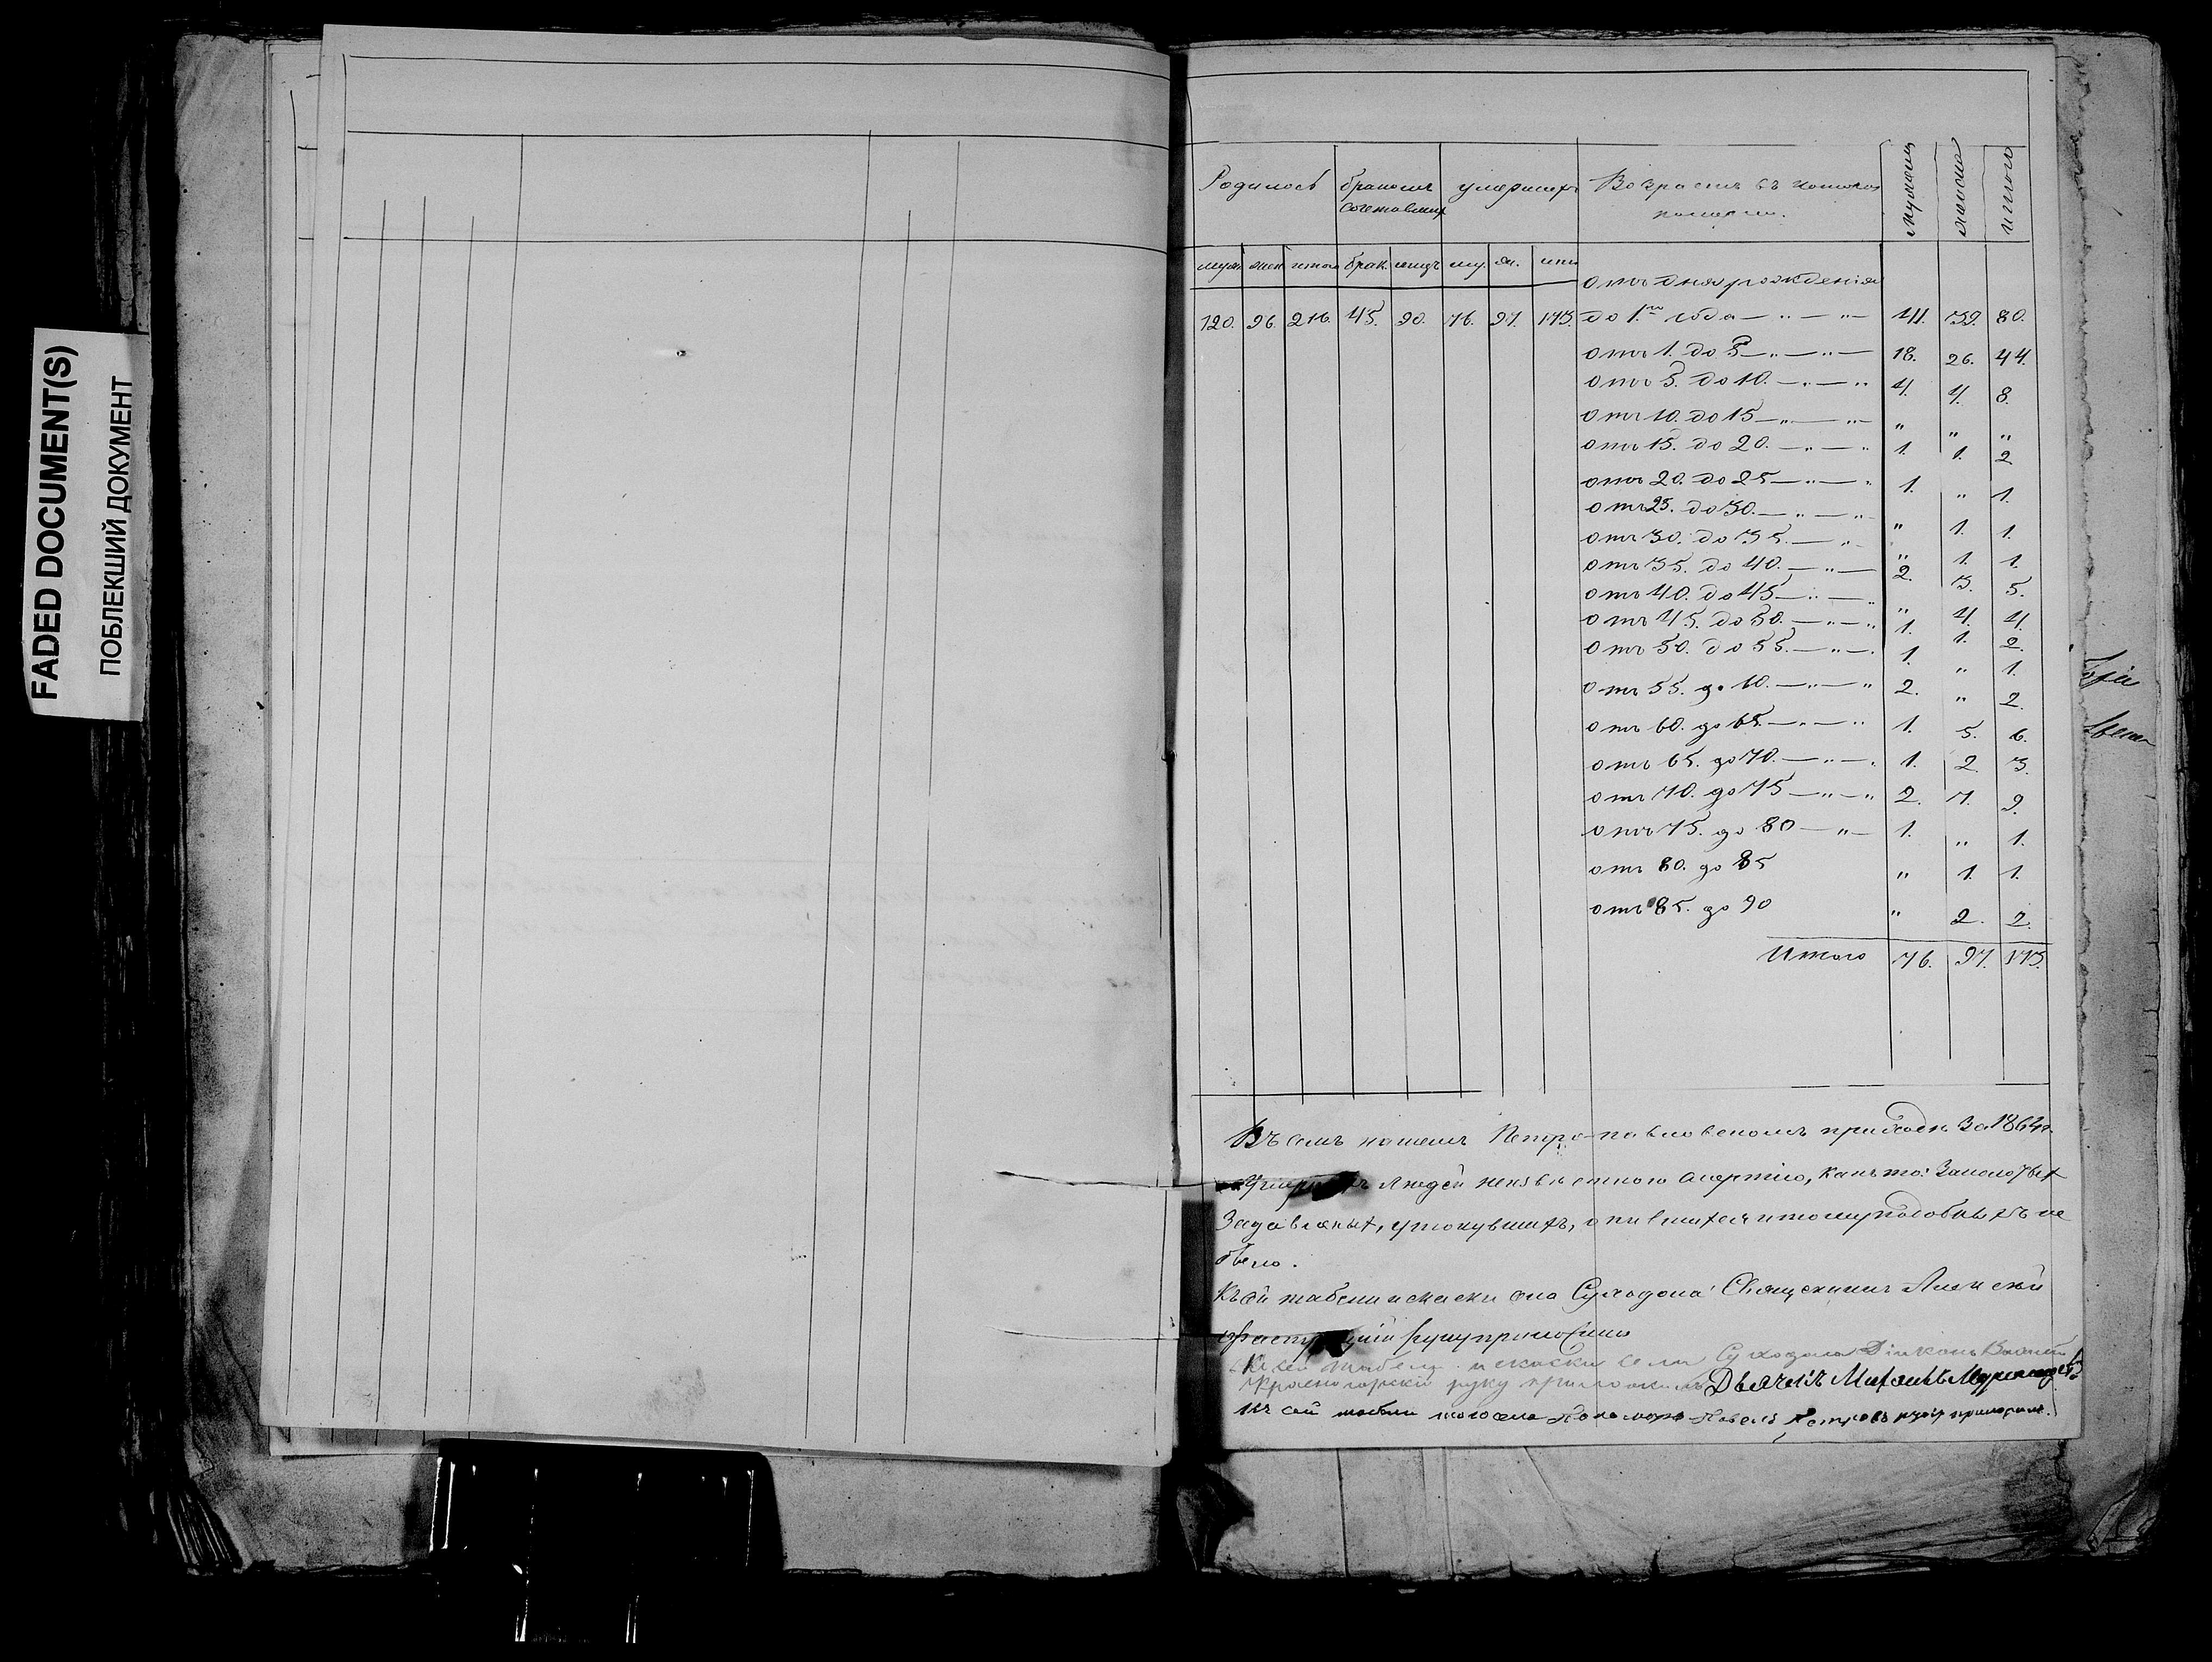 FADED DOCUMENT(S)
ПОБЛЕКШИЙ ДОКУМЕНТ
Родилось бракомъ сочетавших умерших Возрастъ въ которомъ померли. мужеска женска итого
муж жен итого брак. лицъ му. ж. ито
отъ дня рожденія
120. 96. 216. 45. 90. 76. 97. 173. до 1.го года — „ — „ — 41. 39. 80.
отъ 1. до 5 — „ — „ — 18. 26. 44.
отъ 5. до 10. — „ — „ 4. 4. 8.
отъ 10. до 15 — „ — „ „ „ „
отъ 15. до 20. — „ — „ 1. 1. 2
отъ 20. до 25 — „ — „ 1. „ 1.
отъ 25. до 30. — „ — „ „ 1. 1.
отъ 30. до 35. — „ „ 1. 1.
отъ 35. до 40. — „ — 2. 3. 5.
отъ 40. до 45 — „ — „ „ 4. 4.
отъ 45. до 50. — „ — „ 1. 1. 2.
отъ 50. до 55. — „ — 1. „ 1.
отъ 55. до 60. — „ — „ 2. „ 2.
отъ 60. до 65. — „ — „ 1. 5. 6.
отъ 65. до 70. — „ — 1. 2. 3.
отъ 70. до 75 — „ — „ 2. 7. 9
отъ 75. до 80 — „ — 1. „ 1.
отъ 80. до 85 „ 1. 1.
отъ 85. до 90 „ 2. 2.
Итого 76. 97. 173.
Въ семъ нашемъ Петро-павловскомъ приходѣ за
людей неизвѣстною смертію, какъ то:
задавленых, утонувшихъ, опившихся и тому подобныхъ не
было.
Къ сей табели и сказки села Суходола Священникъ
руку приложилъ
Къ сей табели и сказки села Суходола Діаконъ Василій
Красногорскій руку приложилъ Дьячекъ Михаилъ
Къ сей табели того села Пономарь Павелъ Петровъ руку приложилъ.